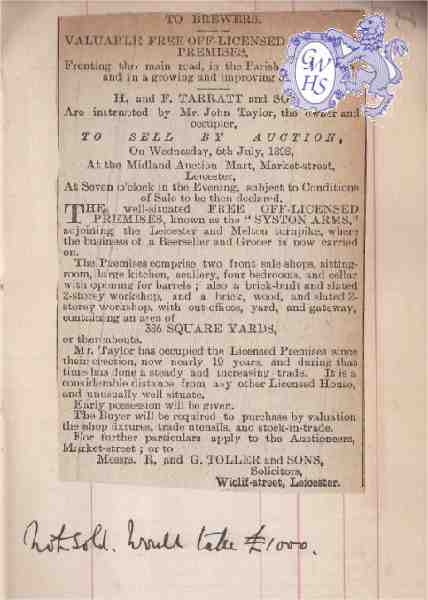 TO BREWERS.
VALUABLE FREE OFF-LICENSED
PREMISES,
Fronting the main road, in the Parish
and in a growing and improving
H. and F. TARRATT and
Are instructed by Mr. John Taylor, the owner and
occupier,
TO SELL BY AUCTION,
On Wednesday, 6th July, 1898,
At the Midland Auction Mart, Market-street,
Leicester,
At Seven o'clock in the Evening, subject to Conditions
of Sale to be then declared,
THE well-situated FREE OFF-LICENSED
PREMISES, known as the "SYSTON ARMS,"
adjoining the Leicester and Melton turnpike, where
the business of a Beerseller and Grocer is now carried
on.
The Premises comprise two front sale shops, sitting-
room, large kitchen, scullery, four bedrooms, and cellar
with opening for barrels; also a brick-built and slated
2-storey workshop, and a brick, wood, and slated 2-
storey workshop, with out-offices, yard, and gateway,
containing an area of
336 SQUARE YARDS,
or thereabouts.
Mr. Taylor has occupied the Licensed Premises since
their erection, now nearly 19 years, and during that
time has done a steady and increasing trade. It is a
considerable distance from any other Licensed House,
and unusually well situate.
Early possession will be given.
The Buyer will be required to purchase by valuation
the shop fixtures, trade utensils, and stock-in-trade.
For further particulars apply to the Auctioneers,
Market-street; or to
Messrs. R. and G. TOLLER and SONS,
Solicitors,
Wiclif-street, Leicester.
Not sold. Would take £1000.
GWHS